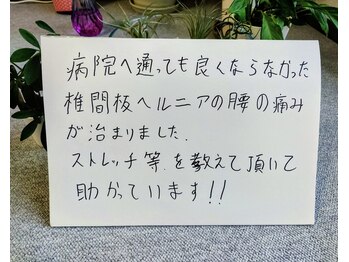 病院へ通っても良くならなかった
椎間板ヘルニアの腰の痛み
が治まりました.
ストレッチ等.を教えて頂いて
助かっています!!